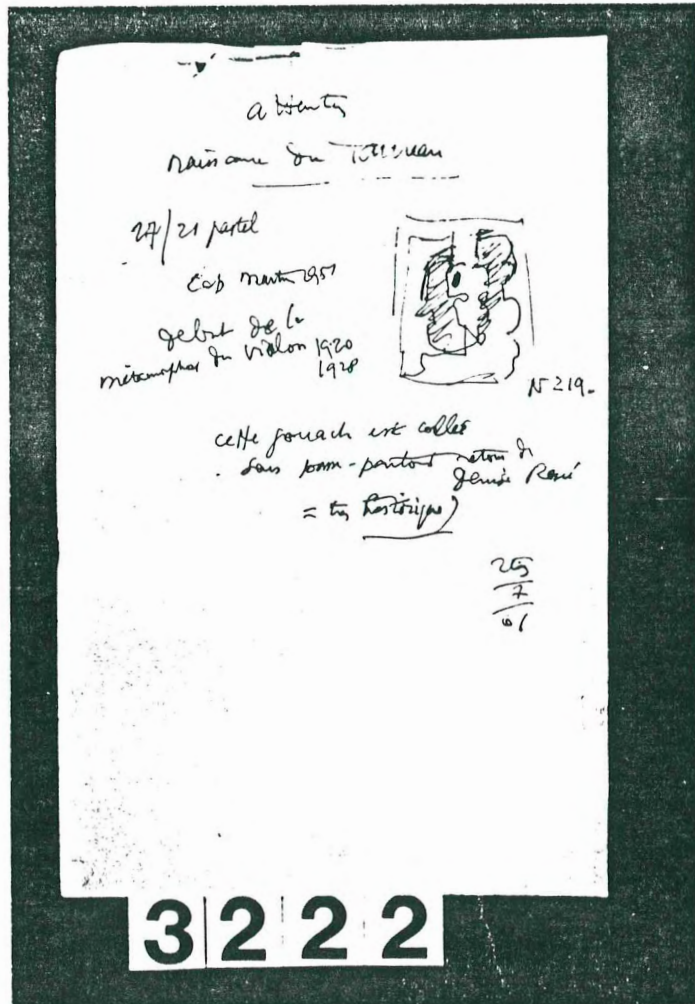 attention
naissance du Taureau
27/21 pastel
Cap Martin 1951
debut de la
métamorphose du violon 1920
1928
N 219.
cette gouach est collée
dans passe-partout retour de
Denise René
= très historique)
7
61
3222